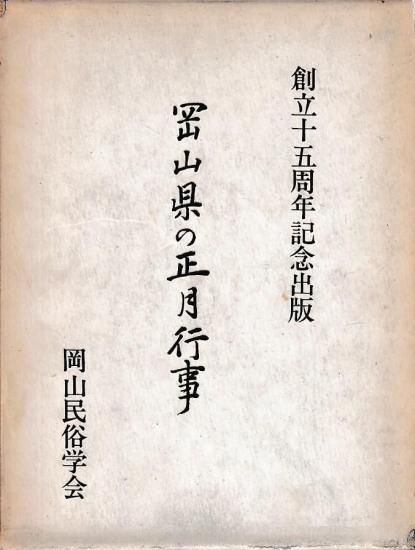 創立十五周年記念出版
岡山県の正月行事
岡山民俗学会